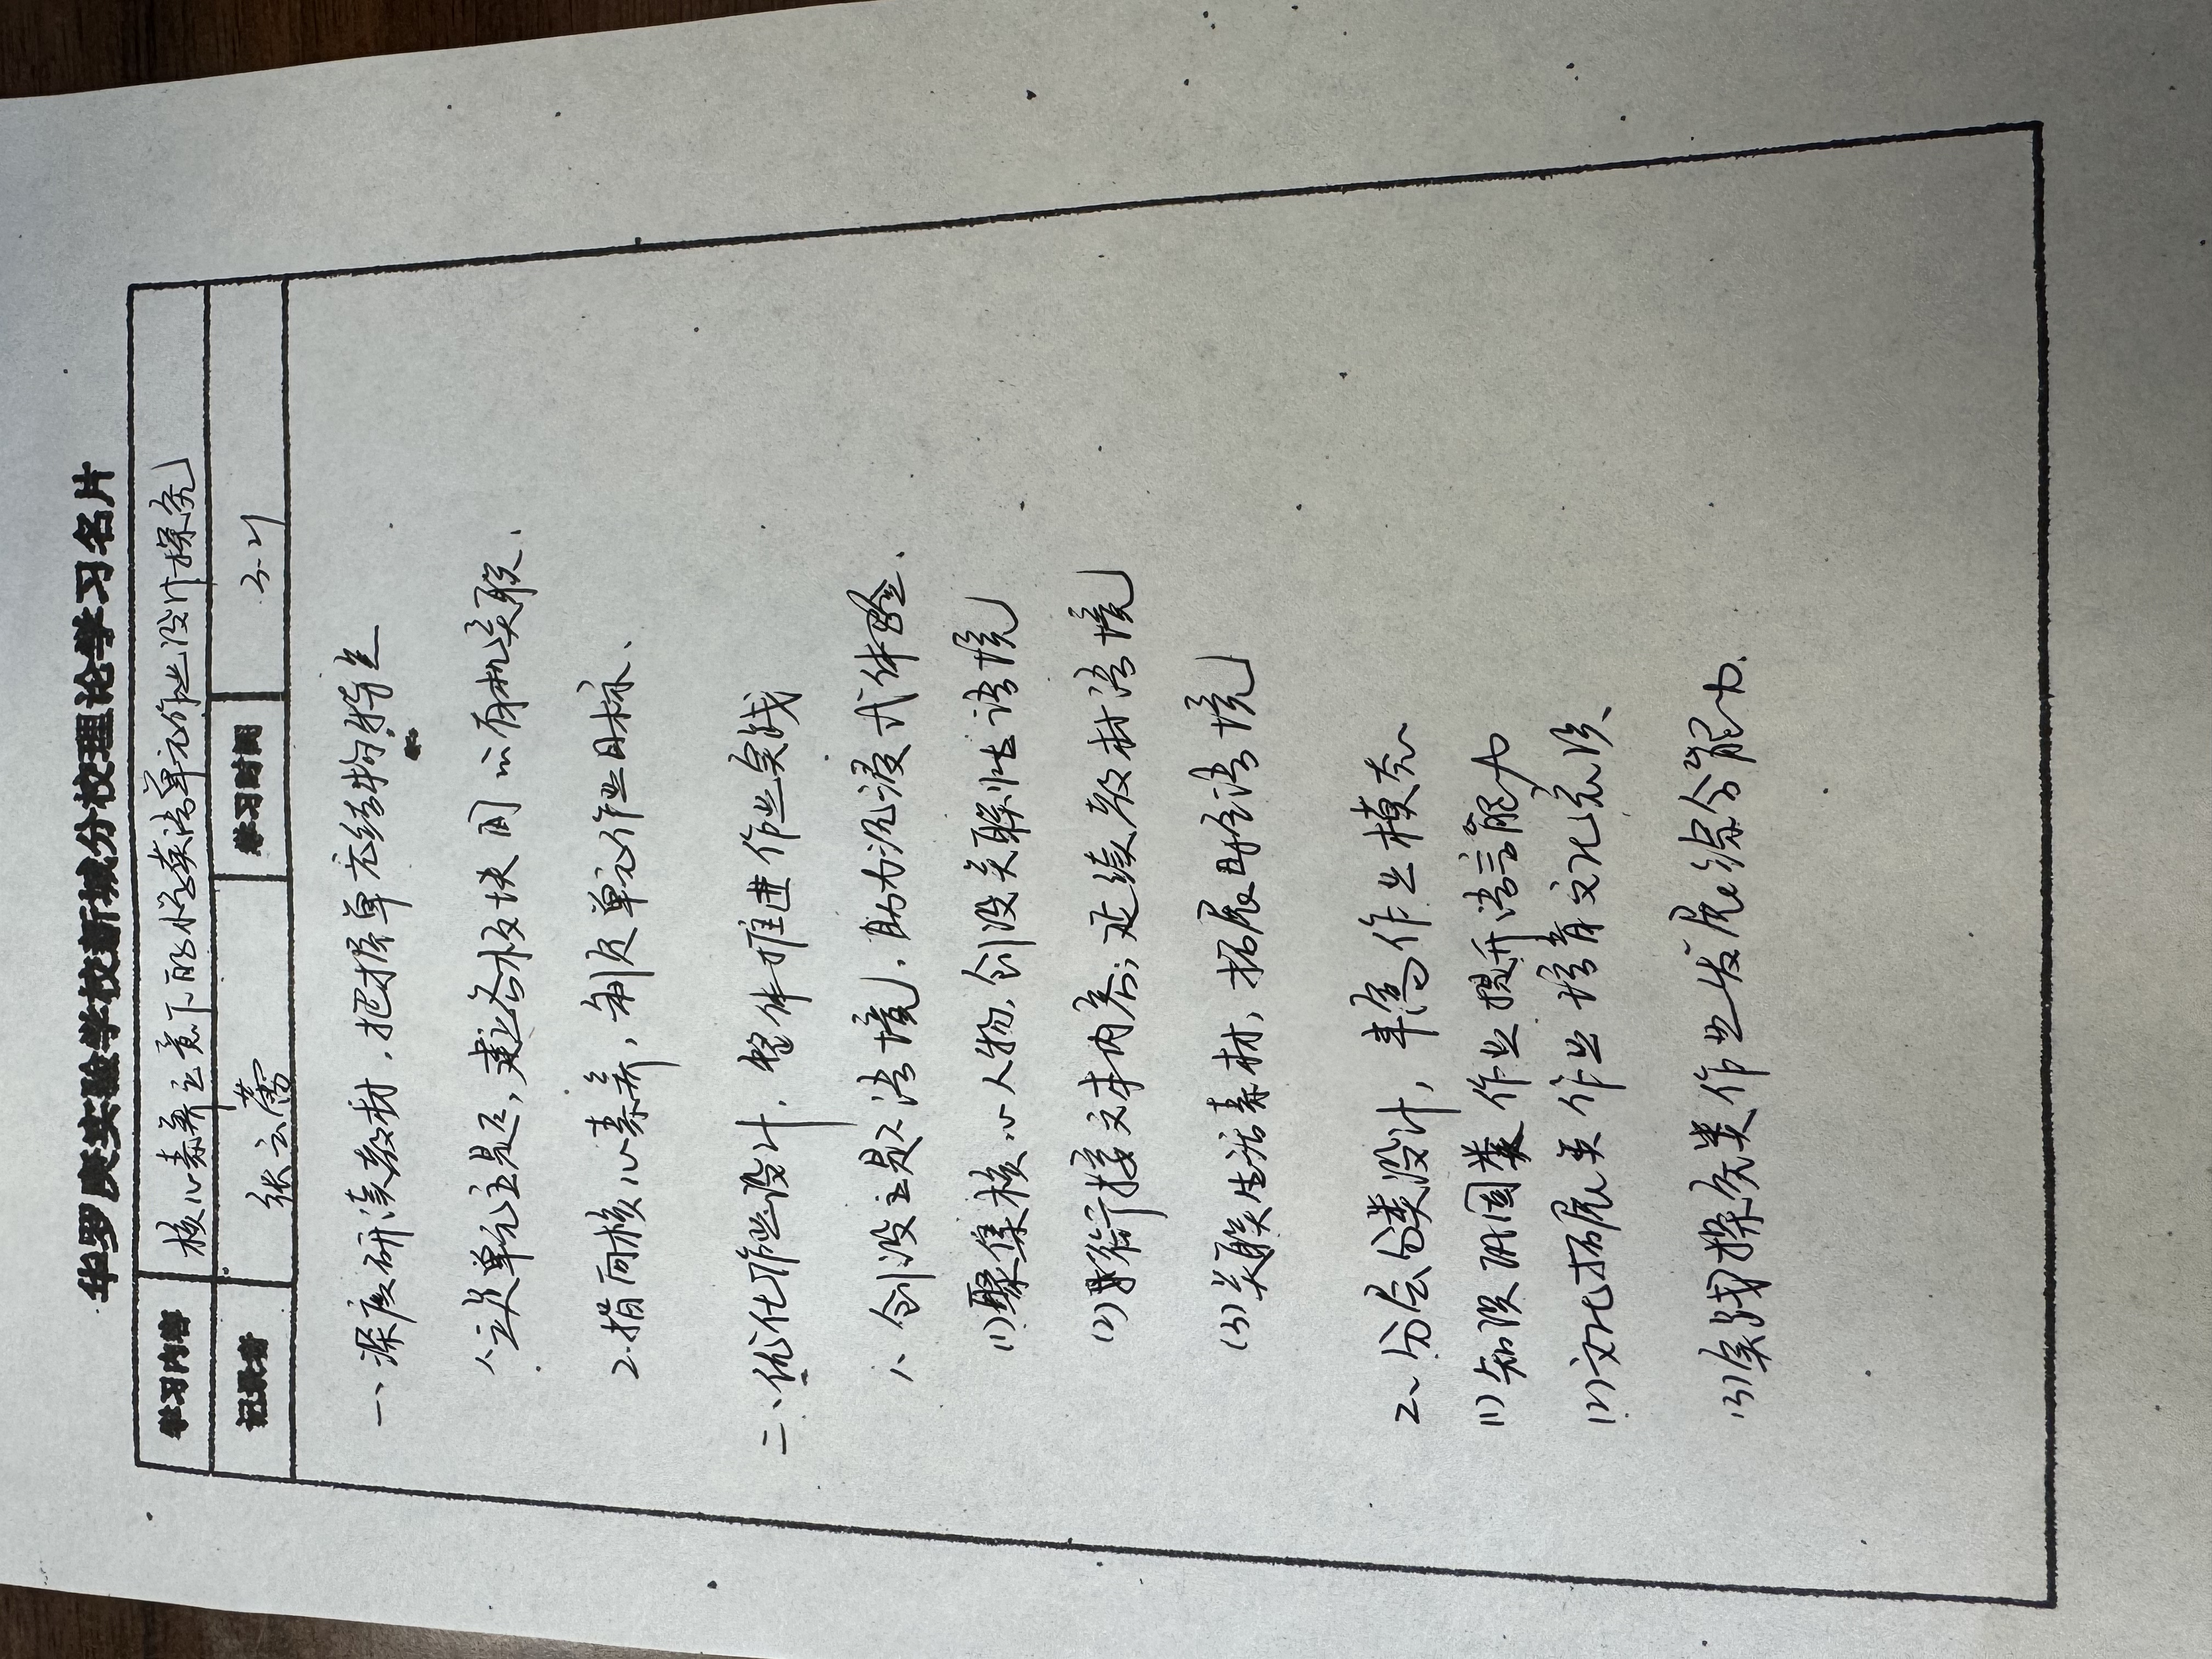 华罗庚实验学校新城分校理论学习名片
学习内容 核心素养立意下的小学英语单元作业设计探究
记录者 张云蕾 学习时间 3.21
一、深度研读教材，把握单元结构特定
1、立足单元主题，建立各板块间的有机关联、
2、指向核心素养，制定单元作业目标、
二、优化作业设计，整体推进作业实践
1、创设主题语境，助力沉浸式体验、
(1)聚集核心人物，创设关联性语境
(2)衔接文本内容，延续教材语境
(3)关联生活素材，拓展再构语境
2、分层分类设计，丰富作业模态
(1)知识巩固类作业提升语言能力
(2)文化拓展类作业培育文化意识、
(3)实践探究类作业发展综合能力.